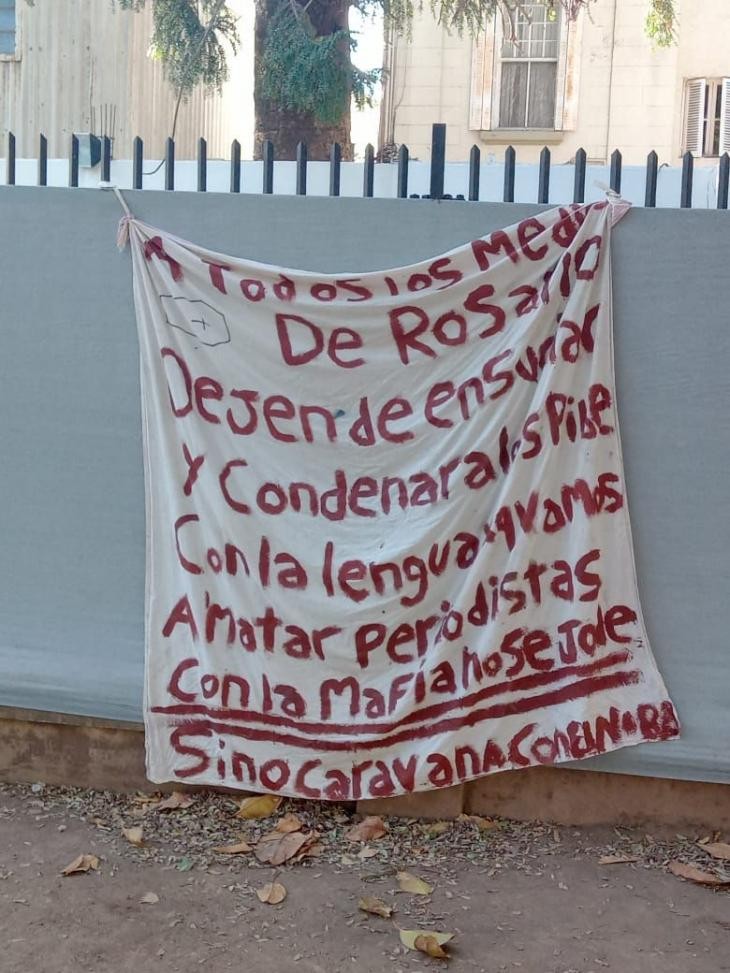 A Todos los Medio
De Rosario
Dejen de ensuciar
y Condenar a los Pibe
Con la lengua xq vamos
A Matar Periodistas
Con la Mafia no Se Jode
Sino Caravana Con el N